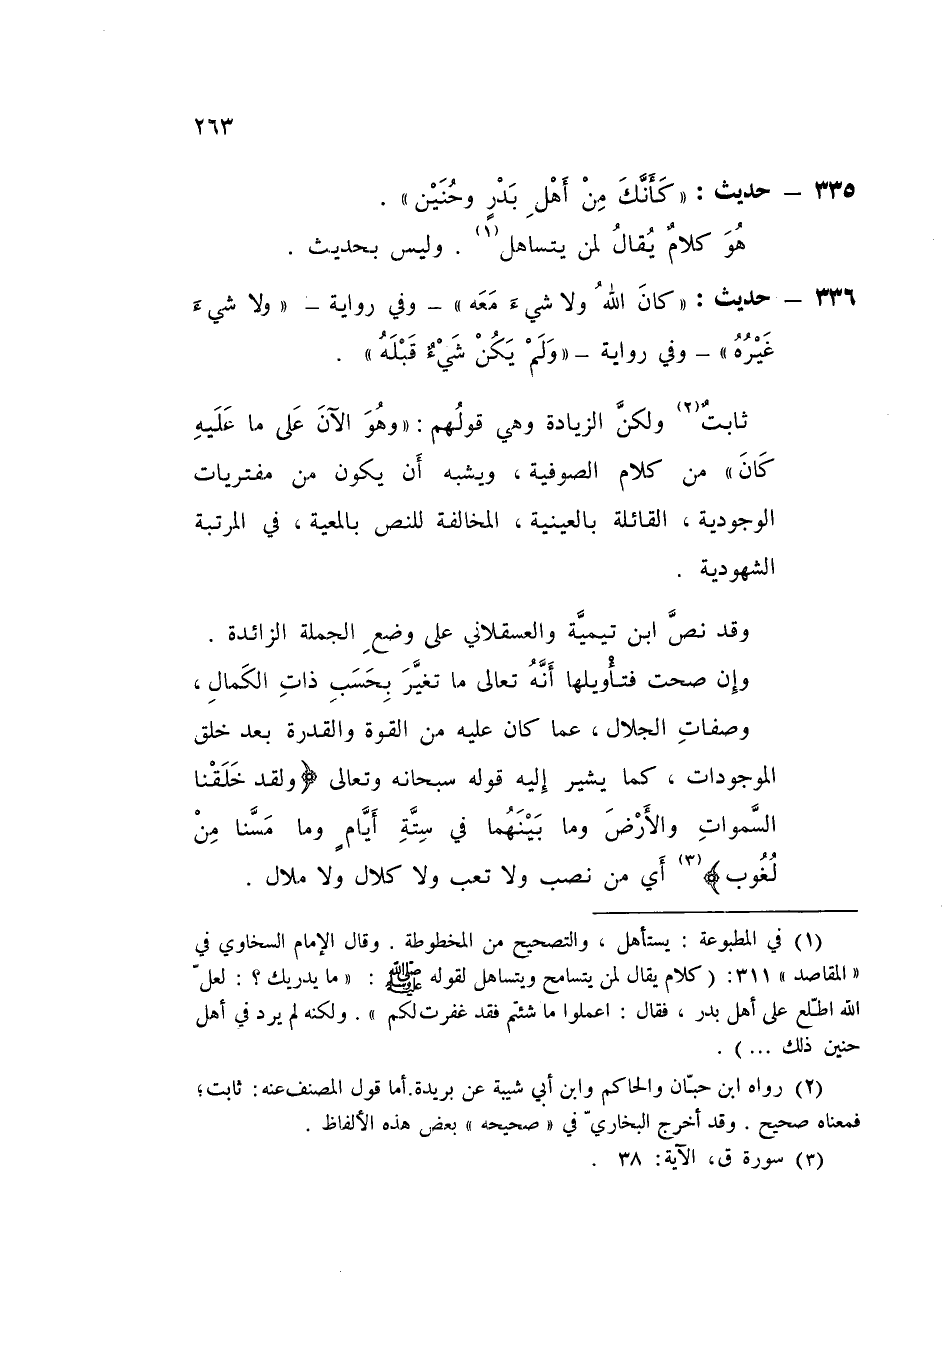 ٢٦٣
٣٣٥ – حديث : « كَأَنَّكَ مِنْ أَهْلِ بَدْرٍ وحُنَيْن » .
هُوَ كلامٌ يُقالُ لمن يتساهل(١) . وليس بحديث .
٣٣٦ – حديث : « كانَ اللهُ ولا شيءَ مَعَه » – وفي رواية – « ولا شيءَ
غَيْرُهُ » – وفي رواية – « وَلَمْ يَكُنْ شَيْءٌ قَبْلَهُ » .
ثابتٌ(٢) ولكنَّ الزيادة وهي قولُهم : « وهُوَ الآنَ عَلى ما عَلَيهِ
كَانَ » من كلام الصوفية ، ويشبه أَن يكون من مفتريات
الوجودية ، القائلة بالعينية ، المخالفة للنص بالمعية ، في المرتبة
الشهودية .
وقد نصَّ ابن تيميَّة والعسقلاني على وضعِ الجملة الزائدة .
وإن صحت فتأْويلها أَنَّهُ تعالى ما تغيَّرَ بِحَسَبِ ذاتِ الكَمالِ ،
وصفاتِ الجلال ، عما كان عليه من القوة والقدرة بعد خلق
الموجودات ، كما يشير إليه قوله سبحانه وتعالى ﴿ولقد خَلَقْنا
السَّمواتِ والأَرْضَ وما بَيْنَهُما في سِتَّةِ أَيَّامٍ وما مَسَّنا مِنْ
لُغُوب﴾(٣) أَي من نصب ولا تعب ولا كلال ولا ملال .
(١) في المطبوعة : يستأهل ، والتصحيح من المخطوطة . وقال الإمام السخاوي في
« المقاصد » ٣١١: ( كلام يقال لمن يتسامح ويتساهل لقوله ﷺ : « ما يدريك ؟ : لعلّ
الله اطلّع على أهل بدر ، فقال : اعملوا ما شئتم فقد غفرت لكم » . ولكنه لم يرد في أهل
حنين ذلك ... ) .
(٢) رواه ابن حبّان والحاكم وابن أبي شيبة عن بريدة. أما قول المصنف عنه : ثابت ؛
فمعناه صحيح . وقد أخرج البخاريّ في « صحيحه » بعض هذه الألفاظ .
(٣) سورة ق، الآية: ٣٨ .